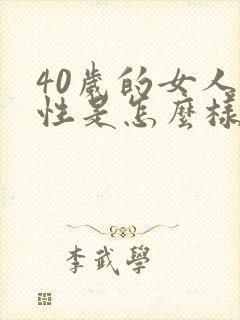 40歲的女人
性是怎麼樣
李武學